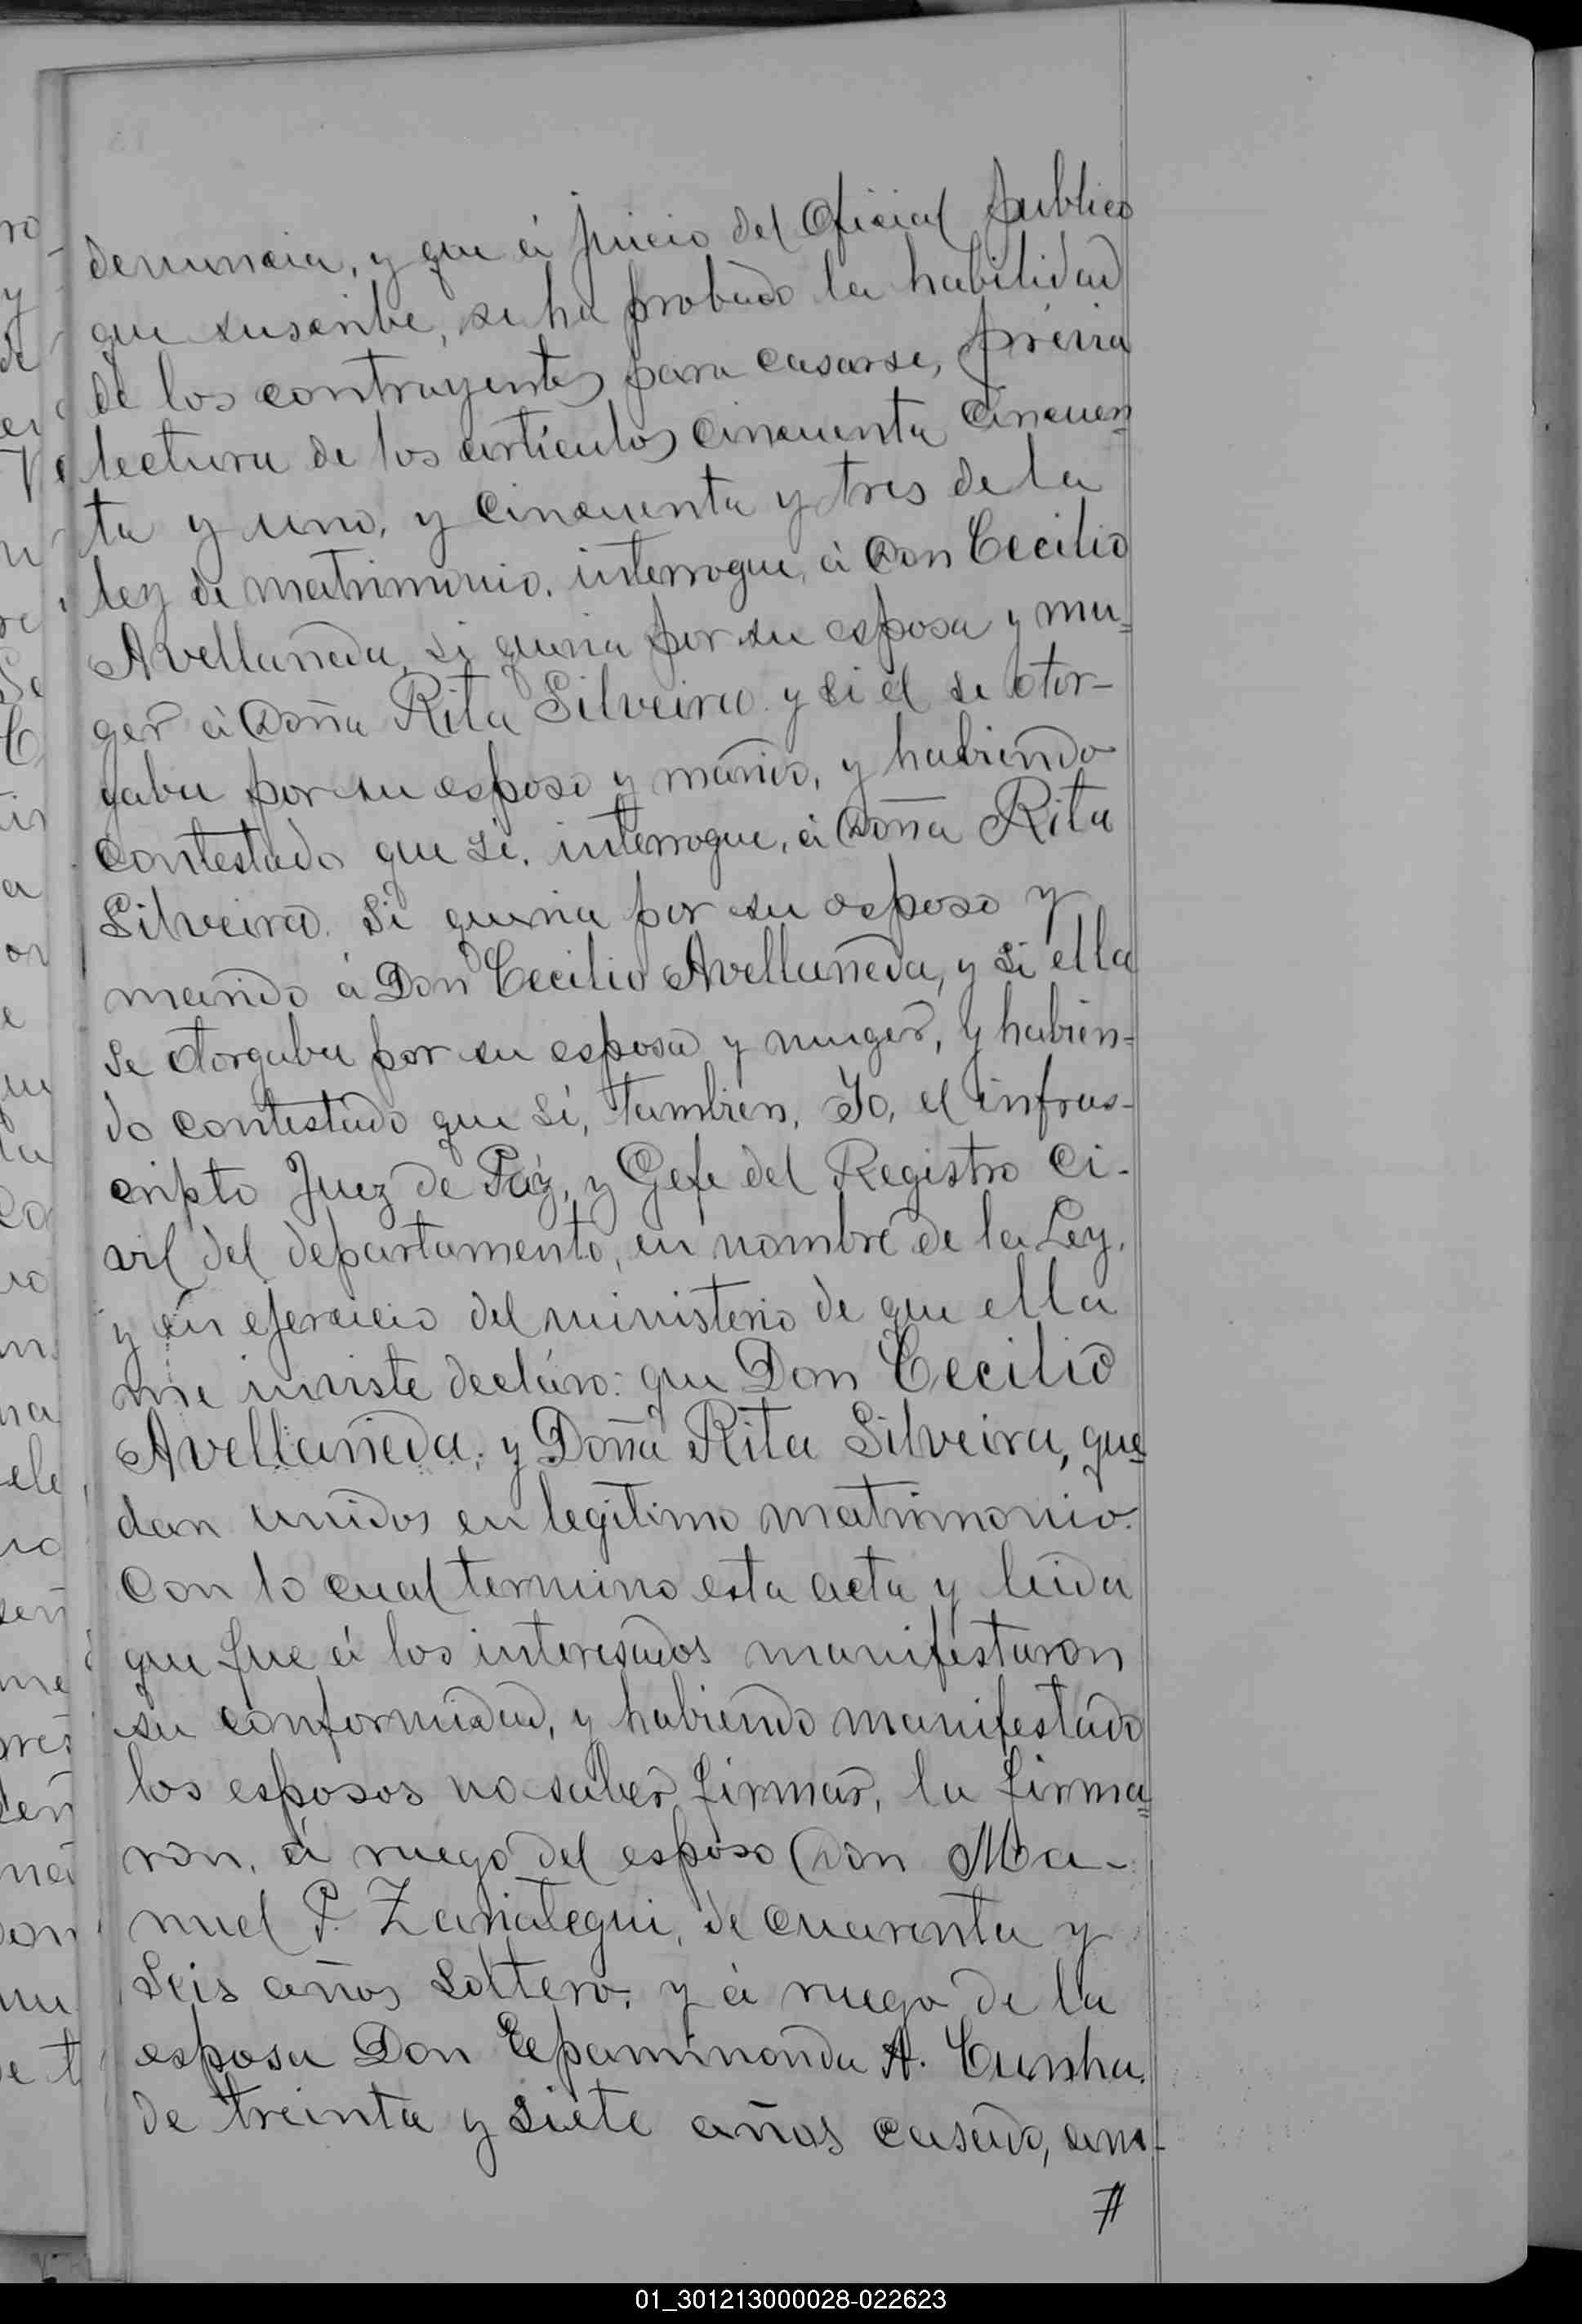 denuncia, y que á juicio del Oficial publico
que suscribe, se ha probado la habilidad
de los contrayentes para casarse, prévia
lectura de los artículos cincuenta cincuen=
ta y uno, y cincuenta y tres de la
ley de matrimonio. interrogue, á Don Cecilio
Avellaneda, si queria por su esposa y mu=
ger á Doña Rita Silveira y si el se otor-
gaba por su esposo y marido, y habiendo
contestado que si. interrogue, á Doña Rita
Silveira. Si queria por su esposo y
marido á Don Cecilio Avellaneda, y si ella
se otorgaba por su esposa y muger, y habien=
do contestado que sí, tambien, Yo, el infras-
cripto Juez de Páz, y Gefe del Registro Ci-
vil del departamento, en nombre de la Ley,
y en ejercicio del ministerio de que ella
me inviste decláro: que Don Cecilio
Avellaneda, y Doña Rita Silveira, que=
dan unidos en legítimo matrimonio.
Con lo cual termino esta acta y leida
que fue á los interesados manifestaron
su conformidad, y habiendo manifestado
los esposos no saber firmar, la firma=
ron, á ruego del esposo Don Ma-
nuel P. Zariategui, de cuarenta y
seis años soltero, y á ruego de la
esposa Don Epaminonda A. Cunha.
de treinta y siete años casado, am-
01_301213000028-022623